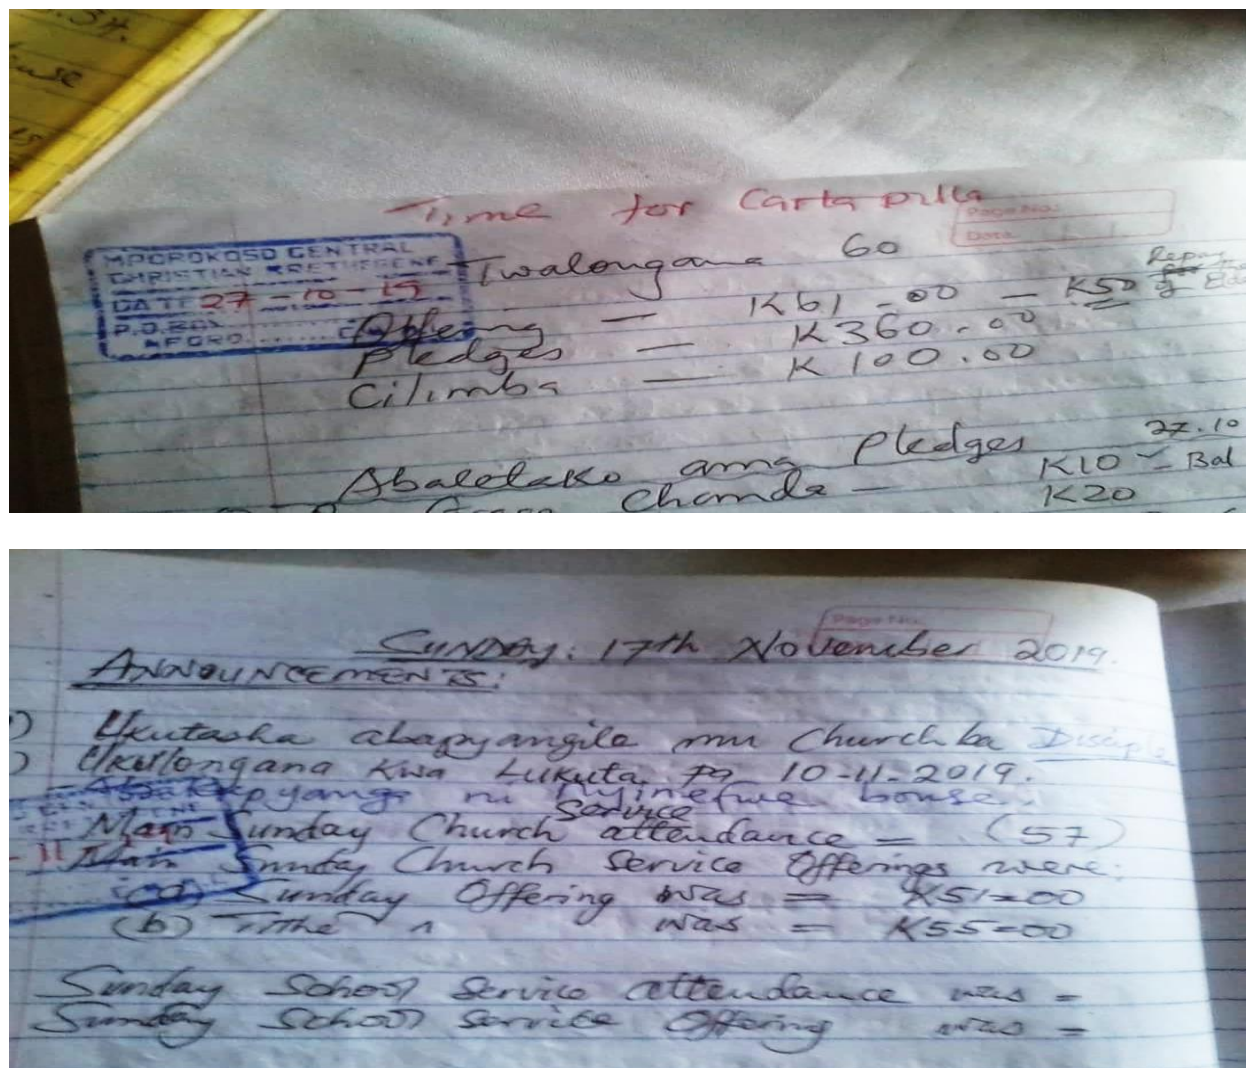 .34.
Time for Carta pilla
Page No.
Date
MPOROKOSO CENTRAL
CHRISTIAN BRETHERENE
DATE 27-10-19
P.O. BOX
MPORO
Twalongana 60
Offering — K61-00 — K50
Pledges — K360.00
Cilimba — K100.00
Abaletako ama Pledges 27.10
Chanda — K10 - Bal
K20
Page No.
SUNDAY: 17th November 2019.
ANNOUNCEMENTS:
Ukutasha abapyangile mu Church ba Disciple
Ukulongana Kwa Lukuta pa 10-11-2019.
bonse.
Main Sunday Church Service attendance = (57)
Main Sunday Church Service Offerings were:
(a) Sunday Offering was = K51=00
(b) Tithe " was = K55=00
Sunday School Service attendance was =
Sunday School Service Offering was =